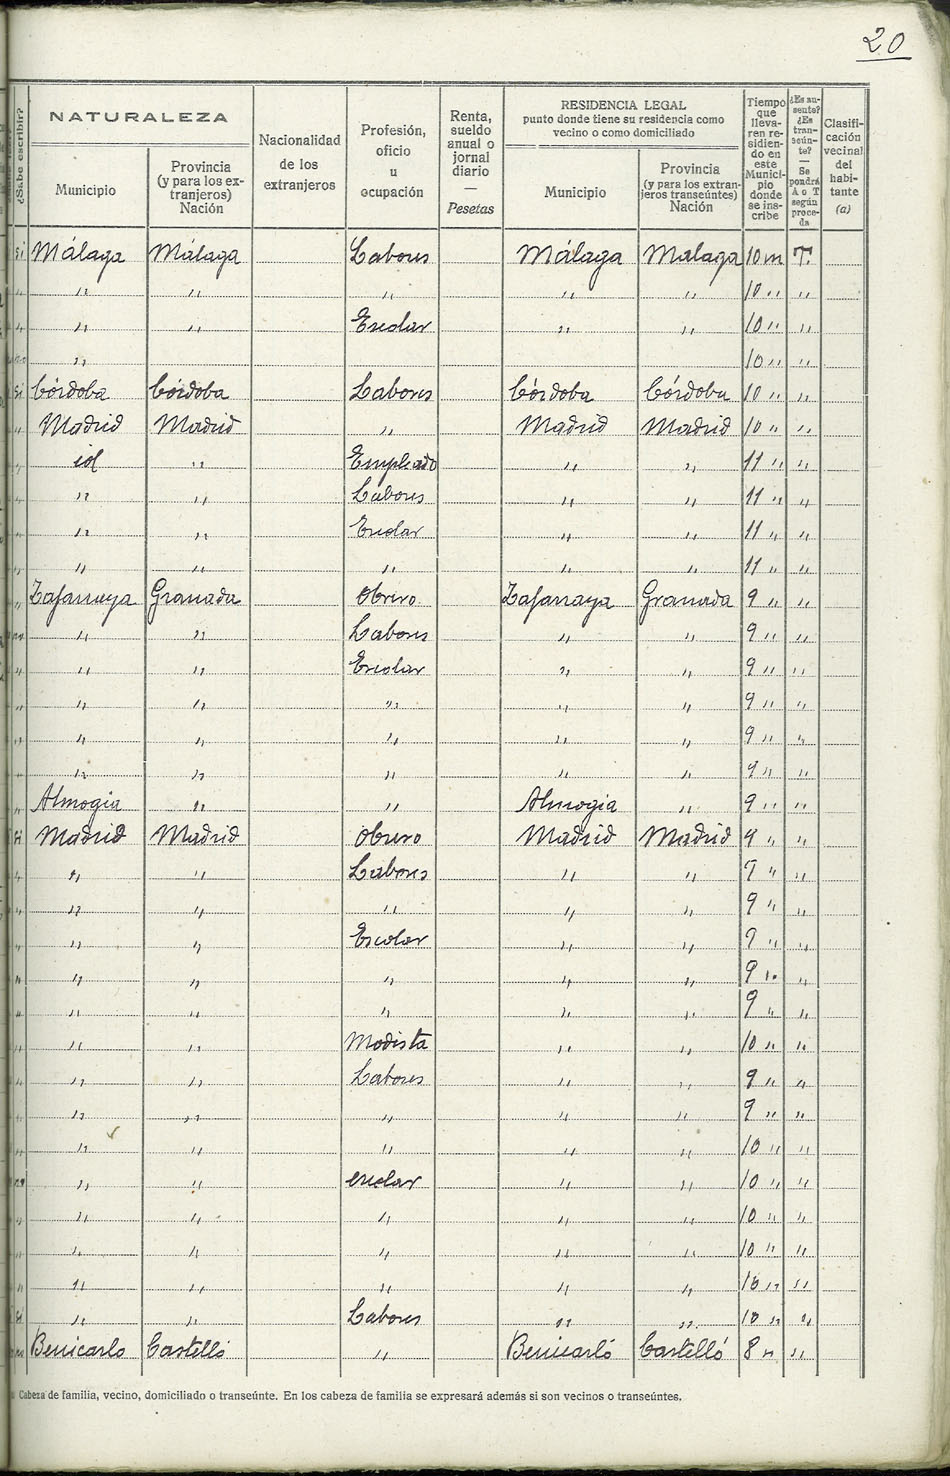 20
¿Sabe escribir?
NATURALEZA
Municipio
Provincia (y para los extranjeros) Nación
Nacionalidad de los extranjeros
Profesión, oficio u ocupación
Renta, sueldo anual o jornal diario — Pesetas
RESIDENCIA LEGAL
punto donde tiene su residencia como vecino o como domiciliado
Municipio
Provincia (y para los extranjeros transeúntes) Nación
Tiempo que llevaren residiendo en este Municipio donde se inscribe
¿Es ausente? ¿Es transeúnte? — Se pondrá A o T según proceda
Clasificación vecinal del habitante (a)
si Málaga Málaga Labores Málaga Malaga 10 m T.
" " " " " " 10 " "
" " " Escolar " " 10 " "
" 10 " "
si Córdoba Córdoba Labores Córdoba Córdoba 10 " "
" Madrid Madrid " Madrid Madrid 10 " "
" id " Empleado " " 11 " "
" " " Labores " " 11 " "
" " " Escolar " " 11 " "
" " " " " " 11 " "
" Zafarraya Granada Obrero Zafarraya Granada 9 " "
" " Labores " " 9 " "
" " " Escolar " " 9 " "
" " " " " " 9 " "
" " " " " " 9 " "
" " " " " " 9 " "
" Almogia " " Almogia " 9 " "
si Madrid Madrid Obrero Madrid Madrid 9 " "
" " " Labores " " 9 " "
" " " " " " 9 " "
" " " Escolar " " 9 " "
" " " " " " 9 " "
" " " " " " 9 " "
" " " Modista " " 10 " "
" " " Labores " " 9 " "
" " " " " " 9 " "
" " " " " " 10 " "
" " escolar " " 10 " "
" " " " " " 10 " "
" " " " " " 10 " "
" " " " " " 10 " "
si " " Labores " " 10 " "
Benicarlo Castelló " Benicarló Castelló 8 " "
Cabeza de familia, vecino, domiciliado o transeúnte. En los cabeza de familia se expresará además si son vecinos o transeúntes.